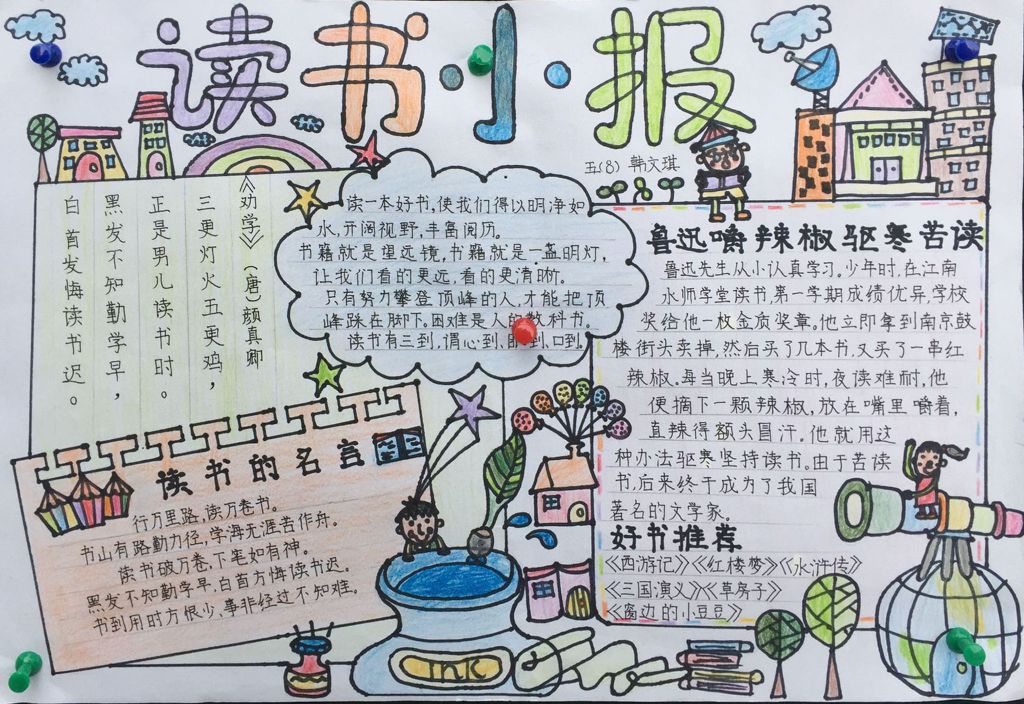 读书·小·报
五(8) 韩文琪
《劝学》
(唐)颜真卿
三更灯火五更鸡，
正是男儿读书时。
黑发不知勤学早，
白首发悔读书迟。
读一本好书,使我们得以明净如
水,开阔视野,丰富阅历。
书籍就是望远镜,书籍就是一盏明灯,
让我们看的更远,看的更清晰。
只有努力攀登顶峰的人,才能把顶
峰踩在脚下。困难是人的教科书。
读书有三到,谓心到、眼到、口到。
鲁迅嚼辣椒驱寒苦读
鲁迅先生从小认真学习。少年时,在江南
水师学堂读书,第一学期成绩优异,学校
奖给他一枚金质奖章。他立即拿到南京鼓
楼街头卖掉,然后买了几本书,又买了一串红
辣椒。每当晚上寒冷时,夜读难耐,他
便摘下一颗辣椒,放在嘴里嚼着,
直辣得额头冒汗。他就用这
种办法驱寒坚持读书。由于苦读
书,后来终于成为了我国
著名的文学家。
好书推荐
《西游记》《红楼梦》《水浒传》
《三国演义》《草房子》
《窗边的小豆豆》
读书的名言
行万里路,读万卷书。
书山有路勤力径,学海无涯苦作舟。
读书破万卷,下笔如有神。
黑发不知勤学早,白首方悔读书迟。
书到用时方恨少,事非经过不知难。
INK